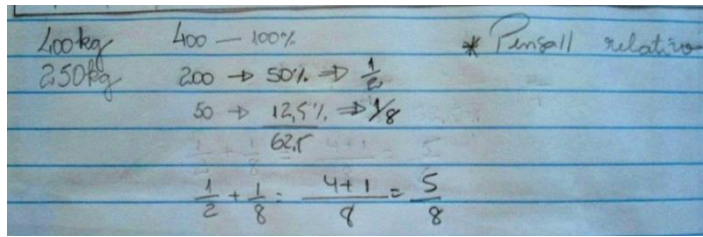 400kg 400 — 100% * Pensall relativo
250kg 200 → 50% ⇒ 1/2
50 → 12,5% ⇒ 1/8
62,5
1/2 + 1/8 = 4+1/8 = 5/8